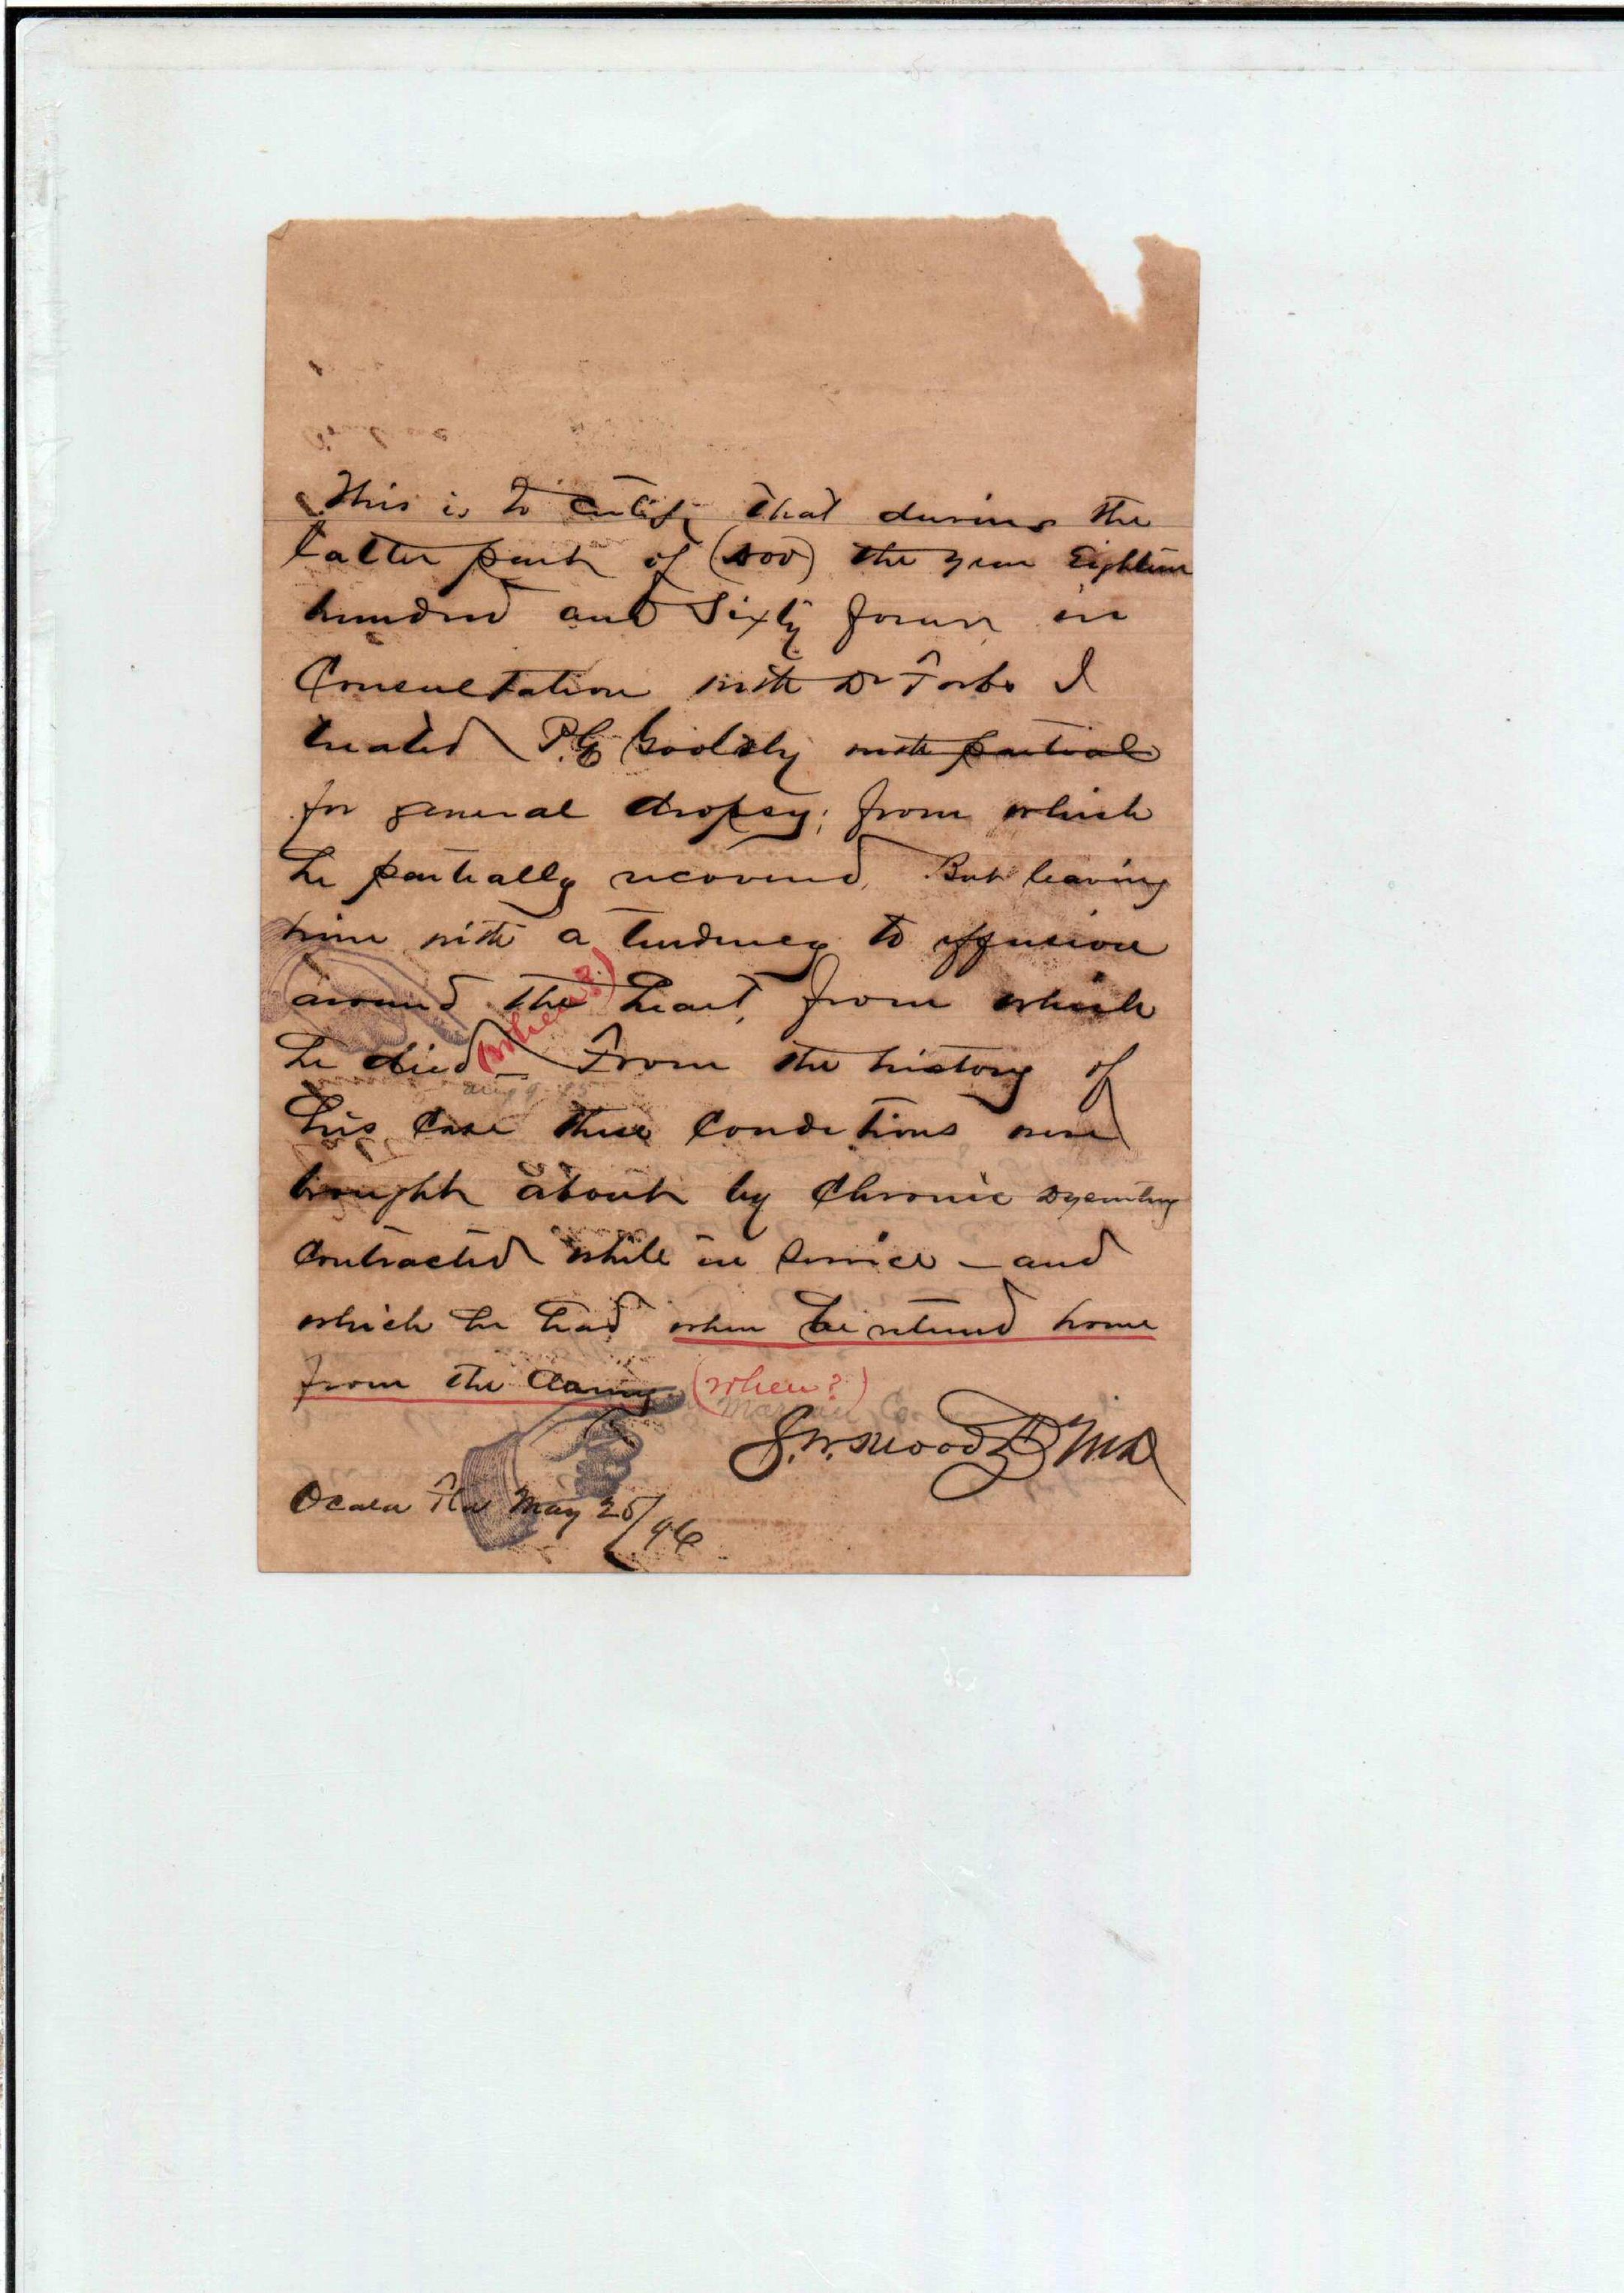 This is to certify that during the
latter part of the year Eighteen
hundred and Sixty four in
Consultation with Dr Forbs I
treated P.G with partial
for general dropsy; from which
he partially recovered, But leaving
him with a tendency to effusion
around the heart, from which
(when?)
he died — From the history of
Aug 9
his Case these Conditions were
brought about by Chronic Dysentery
Contracted while in Service — and
which he had when he returnd home
from the Army. (when?)
Marion Co.
M.D
Ocala Fla May 25/96